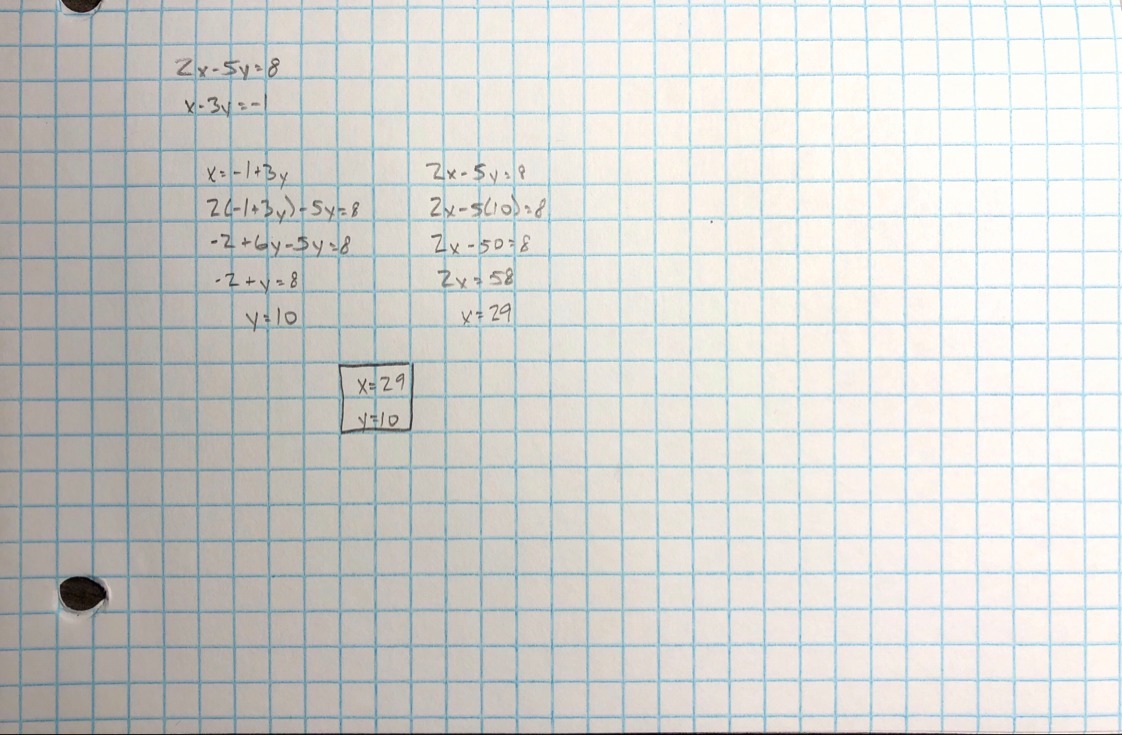 2x-5y=8
x-3y=-1
x=-1+3y
2(-1+3y)-5y=8
-2+6y-5y=8
-2+y=8
y=10
2x-5y=8
2x-5(10)=8
2x-50=8
2x=58
x=29
x=29
y=10